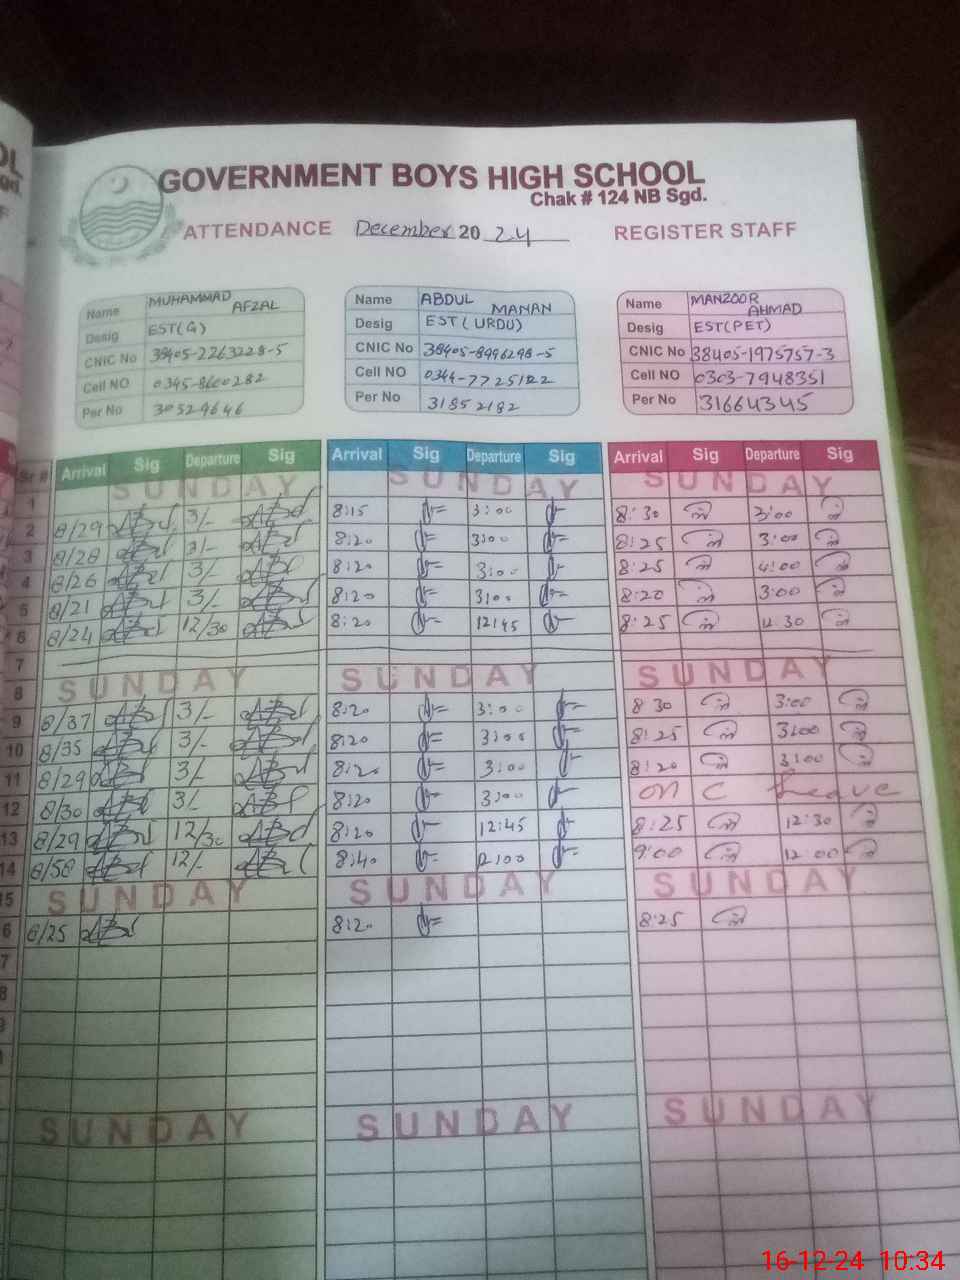 GOVERNMENT BOYS HIGH SCHOOL
Chak # 124 NB Sgd.
ATTENDANCE December 20 24 REGISTER STAFF
Name MUHAMMAD AFZAL
Desig EST(G)
CNIC No 38405-2263228-5
Cell NO 0345-8600282
Per No 30529646
Name ABDUL MANAN
Desig EST (URDU)
CNIC No 38405-8996298-5
Cell NO 0344-7725122
Per No 31852182
Name MANZOOR AHMAD
Desig EST(PET)
CNIC No 38405-1975757-3
Cell NO 0303-7948351
Per No 31664345
Sr # Arrival Sig Departure Sig Arrival Sig Departure Sig Arrival Sig Departure Sig
1 SUNDAY SUNDAY SUNDAY
2 8/29 3/- 8:15 3:00 8:30 3:00
3 8/28 3/- 8:20 3:00 8:25 3:00
4 8/26 3/- 8:20 3:00 8:25 4:00
5 8/21 3/- 8:20 3:00 8:20 3:00
6 8/24 12/30 8:20 12:45 8:25 12:30
7
8 SUNDAY SUNDAY SUNDAY
9 8/37 3/- 8:20 3:00 8:30 3:00
10 8/35 3/- 8:20 3:00 8:25 3:00
11 8/29 3/- 8:20 3:00 8:20 3:00
12 8/30 3/- 8:20 3:00 on C Leave
13 8/29 12/30 8:20 12:45 8:25 12:30
14 8/58 12/- 8:40 12:00 9:00 12:00
15 SUNDAY SUNDAY SUNDAY
6 8/25 8:20 8:25
7
8
9
SUNDAY SUNDAY SUNDAY
16-12-24 10:34